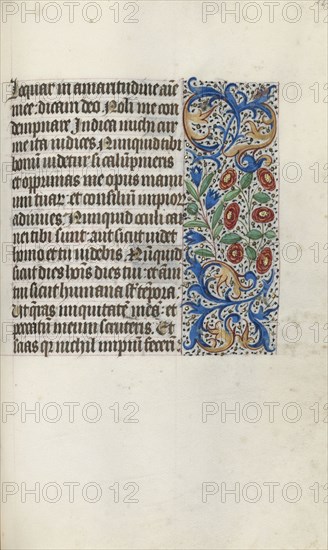 loquar in amaritudine aīe
mee: dicam deo Noli me con
dempnare. Indica michi cur
me ita iudices Nunquid tibi
bonū videtur si calūpneris
et opprimas me opus manu
um tuar. et consiliū impior
adiuues Nunquid oculi car
nei tibi sunt: aut sicut videt
homo et tu videbis. Nūquid
sicut dies hois dies tui: et anni
tui sicut humana sūt tempora
Ut queras iniquitatē meā: et
peccatum meum scruteris. Et
scias quia nichil impium fecerī
PHOTO 12
PHOTO 12
PHOTO 12
PHOTO 12
PHOTO 12
PHOTO 12